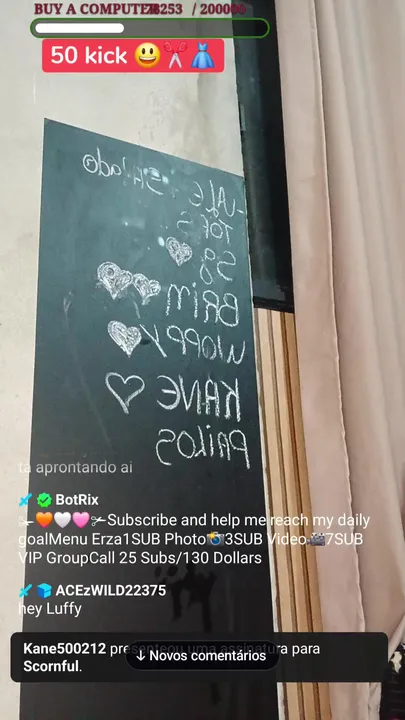 BUY A COMPUTER / 200000
50 kick 😃✂️👗
JALE
TOPS
SG
BRIM
WOPPY
KANE ♡
PAILOS
ta aprontando ai
BotRix
✂🧡🤍🩷✂Subscribe and help me reach my daily
goalMenu Erza1SUB Photo📸3SUB Video🎥7SUB
VIP GroupCall 25 Subs/130 Dollars
ACEzWILD22375
hey Luffy
Kane500212 presenteou uma assinatura para
Scornful.
↓ Novos comentários